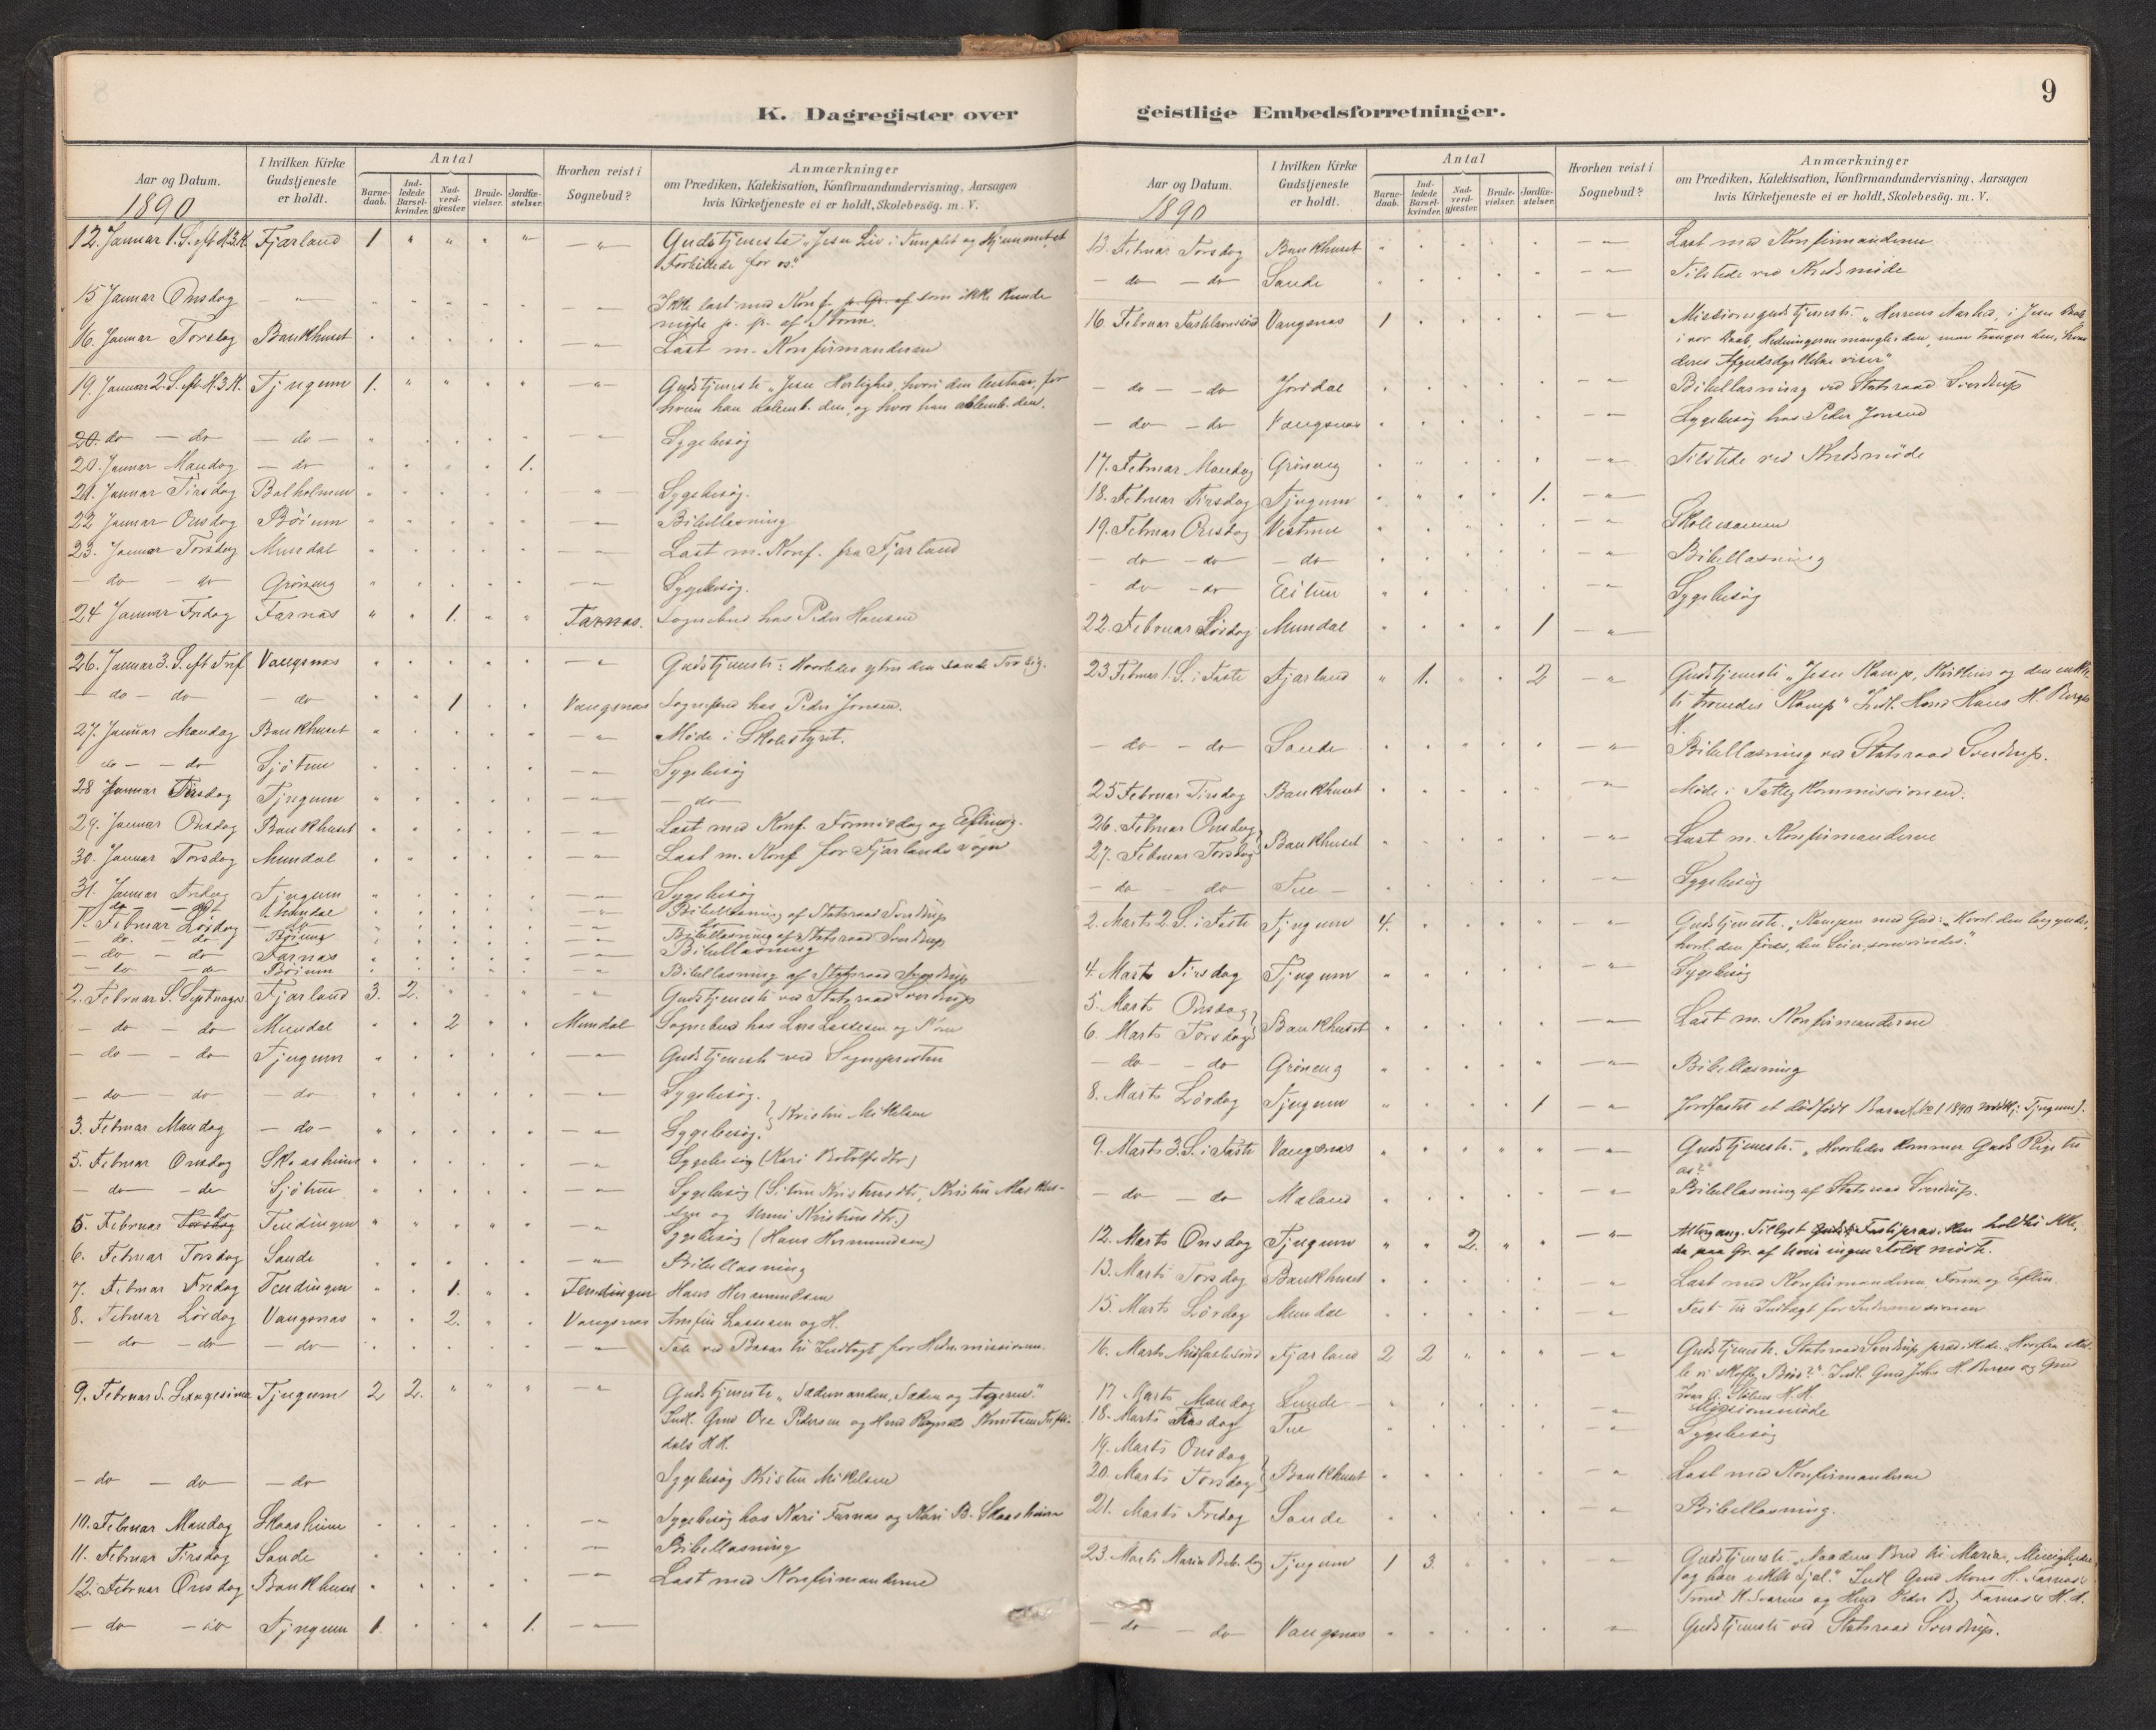 K. Dagregister over
geistlige Embedsforretninger.
9
Aar og Datum.
I hvilken Kirke Gudstjeneste er holdt.
Antal
Barnedaab.
Indledede Barselkvinder.
Nadverdgjæster.
Brudevielser.
Jordfæstelser.
Hvorhen reist i Sognebud?
Anmærkninger
om Prædiken, Katekisation, Konfirmandundervisning, Aarsagen
hvis Kirketjeneste ei er holdt, Skolebesög. m. V.
1890
12. Januar 1. S. eft. H.3.K. Fjærland 1 " " " " — " — Gudstjeneste "Jesu Liv i Templet og Hjemmet et
Forbillede for os."
15 Januar Onsdag — " — Ikke læst med Konf. p. Gr. af som ikke kunde
møde p. gr. af Storm.
16. Januar Torsdag Bankhuset Læst m. Konfirmanderne
19. Januar 2. S. eft. H.3.K. Tjugum 1. Gudstjeneste "Jesu Herlighed, hvori den bestaar, for
hvem han aabenb. den, og hvor han aabenb. den.
20. do — do — do — Sygebesög
20. Januar Mandag — do 1.
21. Januar Tirsdag Balholmen Sygebesög.
22 Januar Onsdag Böium Bibellæsning
23. Januar Torsdag Mundal Læst m. Konf. fra Fjærland
— do — do Gröneng Sygebesög.
24 Januar Fredag Farnæs 1. Farnæs. Sognebud hos Peder Hansen
26. Januar 3. S. eft. Vangsnæs Gudstjeneste: Hvorledes ytrer den sande Tro sig.
— do — do — do 1 Vangsnæs Sognebud hos Peder Jonsen.
27. Januar Mandag Bankhuset Møde i Skolestyret.
— do — do Sjötun Sygebesög
28 Januar Tirsdag Tjugum — do —
29. Januar Onsdag Bankhuset Læst med Konf. Formiddag og Efterm.
30. Januar Torsdag Mundal Læst m. Konf. for Fjærlands Sogn
31. Januar Fredag Tjugum Sygebesög
— do — do Mundal Bibellæsning af Statsraad Sverdrup
1. Februar Lördag — do
— do — do Bibellæsning af Statsraad Sverdrup
— do — do Farnæs Bibellæsning
— do — do Böium Bibellæsning af Statsraad Sverdrup
2. Februar S. Septuages. Fjærland 3. 2. Gudstjeneste ved Statsraad Sverdrup
— do — do Mundal 2 Mundal Sognebud hos Lars Lassesen og
— do — do Tjugum Gudstjeneste ved Sognepresten
— do — do — do Sygebesög. } Kristin Mikelsen
3. Februar Mandag — do — Sygebesög.
5. Februar Onsdag Skaasheim Sygebesög (Kari Botolfsdtr.)
— do — do Sjötun Sygebesög
6. Februar Torsdag Tendingen Sygebesög (Hans Hermundsen)
6. Februar Torsdag Sande Bibellæsning
7. Februar Fredag Tendingen 1. Tendingen Hans Hermundsen
8. Februar Lördag Vangsnæs 2. Vangsnæs Amfin Lassesen og H.
— do — do — do Tale ved Basar til Indtægt for Hedn.missionen.
9. Februar S. Sexagesima Tjugum 2 2. Gudstjeneste "Sædemanden, Sæden og Ageren."
— do — do — do Sygebesög Kristin Mikelsen
10. Februar Mandag Skaasheim Sygebesög hos Kari Farnæs og Kari B. Skaasheim
11. Februar Tirsdag Sande Bibellæsning
12. Februar Onsdag Bankhuset Læst med Konfirmanderne
— do — do Tjugum 1. 1.
Aar og Datum.
I hvilken Kirke Gudstjeneste er holdt.
Antal
Barnedaab.
Indledede Barselkvinder.
Nadverdgjæster.
Brudevielser.
Jordfæstelser.
Hvorhen reist i Sognebud?
Anmærkninger
om Prædiken, Katekisation, Konfirmandundervisning, Aarsagen
hvis Kirketjeneste ei er holdt, Skolebesög. m. V.
1890
13. Februar Torsdag Bankhuset Læst med Konfirmanderne
— do — do Sande Tilstede ved Kredsmöde
16. Februar Fastelavnssönd Vangsnæs 1 Missionsgudstjeneste. i Jesu Daab
i vor Daab, Hedningerne mangler den, men trænger den, hvad
deres Afgudsdyrkelse viser"
— do — do Jordal Bibellæsning ved Statsraad Sverdrup
— do — do Vangsnæs Sygebesög hos Peder Jonsen
17. Februar Mandag Gröneng Tilstede ved Kredsmöde
18. Februar Tirsdag Tjugum 1.
19. Februar Onsdag Vestrum Skoleexamen
— do — do — do Bibellæsning
— do — do Eitun Sygebesög
22. Februar Lördag Mundal 1
23 Februar 1. S. i Faste Fjærland 1. 2 Gudstjeneste "Jesu Kamp, Kirkens og den enkelte
troendes Kamp"
— do — do Sande Bibellæsning ved Statsraad Sverdrup.
25 Februar Tirsdag Bankhuset Möde i Fattigkommissionen.
26. Februar Onsdag }
27. Februar Torsdag } Bankhuset Læst m. Konfirmanderne
— do — do Tue — Sygebesög
2. Marts 2. S. i Faste Tjugum 4. Gudstjeneste. "Kampen med Gud: Hvorl. den begyndes,
hvorl. den föres, den Seier, som vindes."
4. Marts Tirsdag Tjugum Sygebesög
5. Marts Onsdag }
6. Marts Torsdag } Bankhuset Læst m. Konfirmanderne
— do — do Gröneng Bibellæsning
8. Marts Lördag Tjugum 1 Jordfæstet et dödfödt Barn
9. Marts 3. S. i Faste Vangsnæs Gudstjeneste. "Hvorledes kommer Guds Rige til
os?"
— do — do Mæland Bibellæsning af Statsraad Sverdrup.
12. Marts Onsdag Tjugum 2. Altergang. Tillyst Fastepræken holdtes ikke,
da paa Gr. af Veir ingen Folk mödte.
13. Marts Torsdag Bankhuset Læst med Konfirmanderne, Form. og Efterm.
15. Marts Lördag Mundal Fest til Indtægt for Indremissionen
16. Marts Midfastesönd Fjærland 2 2 Gudstjeneste. Statsraad Sverdrup prædikede.
17 Marts Mandag Lunde — Missionsmöde
18. Marts Tirsdag Tue Sygebesög
19. Marts Onsdag }
20. Marts Torsdag } Bankhuset Læst med Konfirmanderne
21. Marts Fredag Sande Bibellæsning.
23. Marts Mariæ Beb.dag Tjugum 1 3. Gudstjeneste. "Naadens Bud til Maria, Menigheden
og hver enkelt Sjæl."
— do — do Vangsnæs Gudstjeneste ved Statsraad Sverdrup.